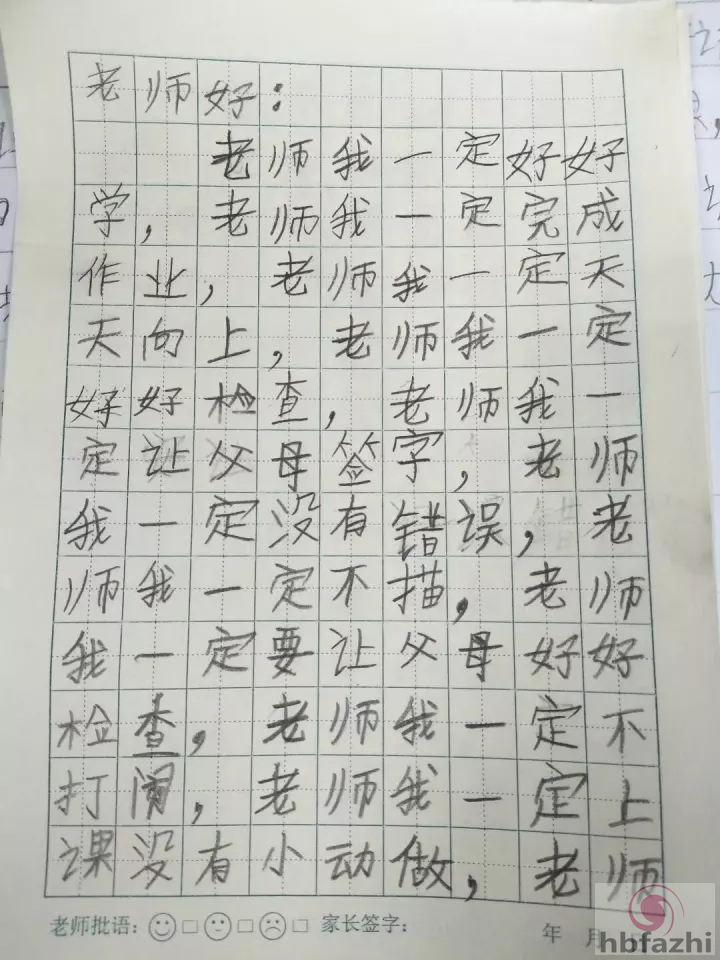 老师好：
老师我一定好好
学，老师我一定完成
作业，老师我一定天
天向上，老师我一定
好好检查，老师我一
定让父母签字，老师
我一定没有错误，老
师我一定不描，老师
我一定要让父母好好
检查，老师我一定不
打闹，老师我一定上
课没有小动做，老师
老师批语：□□□ 家长签字： 年 月
hbfazhi